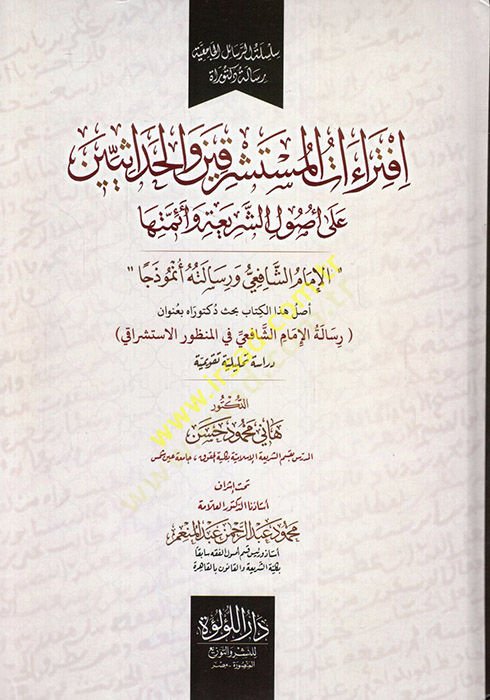 سلسلة الرسائل الجامعية
رسالة دكتوراة
افتراءات المستشرقين والحداثيين
على أصول الشريعة وأئمتها
"الإمام الشافعي ورسالته أنموذجًا"
أصل هذا الكتاب بحث دكتوراه بعنوان
(رسالة الإمام الشافعي في المنظور الاستشراقي)
دراسة تحليلية تقويمية
الدكتور
هاني محمود حسن
المدرس بقسم الشريعة الإسلامية بكلية الحقوق، جامعة عين شمس
تحت إشراف
أستاذنا الدكتور العلامة
محمود عبد الرحمن عبد المنعم
أستاذ ورئيس قسم أصول الفقه سابقا
بكلية الشريعة والقانون بالقاهرة
دار اللؤلؤة
للنشر والتوزيع
المنصورة - مصر